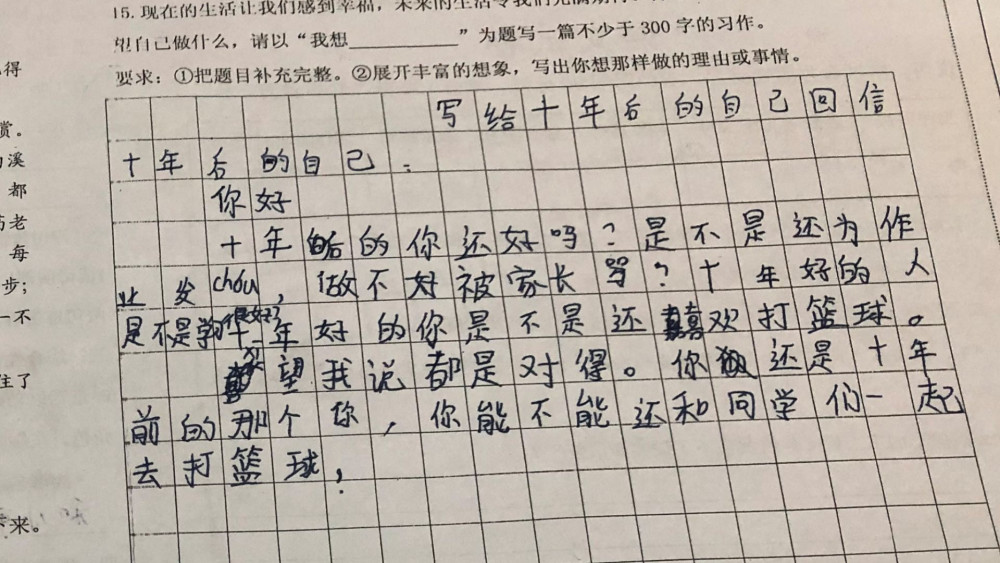 15.现在的生活让我们感到幸福，未来的生活令我们充满期待
望自己做什么，请以“我想________”为题写一篇不少于300字的习作。
要求：①把题目补充完整。②展开丰富的想象，写出你想那样做的理由或事情。
写给十年后的自己回信
十年后的自己：
你好
十年后的你还好吗？是不是还为作
业发chóu，做不好被家长骂？十年好的人
是不是学很好？十年好的你是不是还喜欢打篮球。
希望我说都是对得。你还是十年
前的那个你，你能不能还和同学们一起
去打篮球，
得
赏。
溪
都
老
每
步；
不
住了
来。